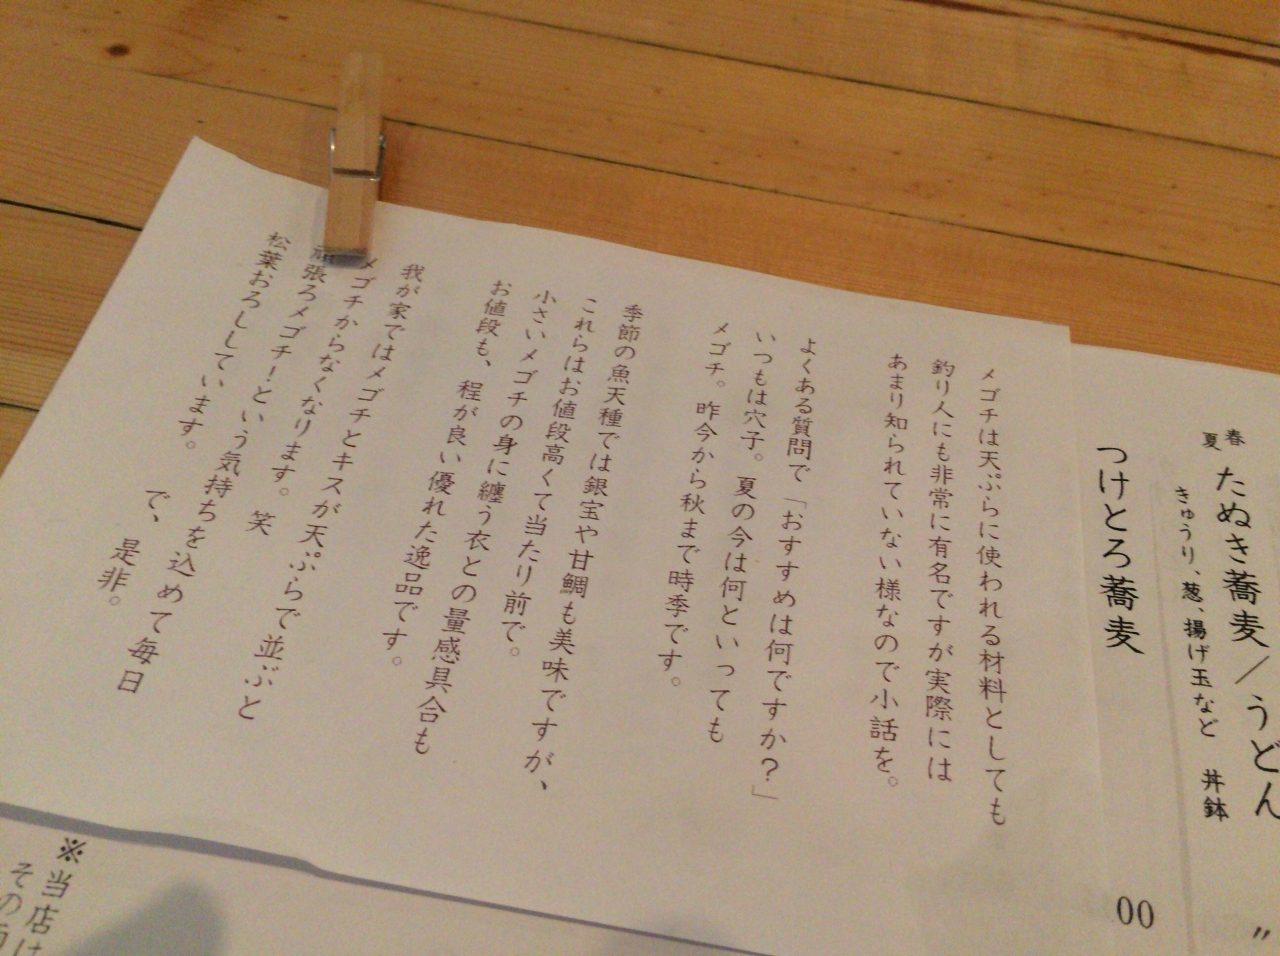 春
夏
たぬき蕎麦／うどん
きゅうり、葱、揚げ玉など　丼鉢
〃
つけとろ蕎麦
00
メゴチは天ぷらに使われる材料としても
釣り人にも非常に有名ですが実際には
あまり知られていない様なので小話を。
よくある質問で「おすすめは何ですか？」
いつもは穴子。夏の今は何といっても
メゴチ。昨今から秋まで時季です。
季節の魚天種では銀宝や甘鯛も美味ですが、
これらはお値段高くて当たり前で。
小さいメゴチの身に纏う衣との量感具合も
お値段も、程が良い優れた逸品です。
我が家ではメゴチとキスが天ぷらで並ぶと
メゴチからなくなります。笑
頑張ろメゴチ！という気持ちを込めて毎日
松葉おろししています。
で、是非。
※当店は
その